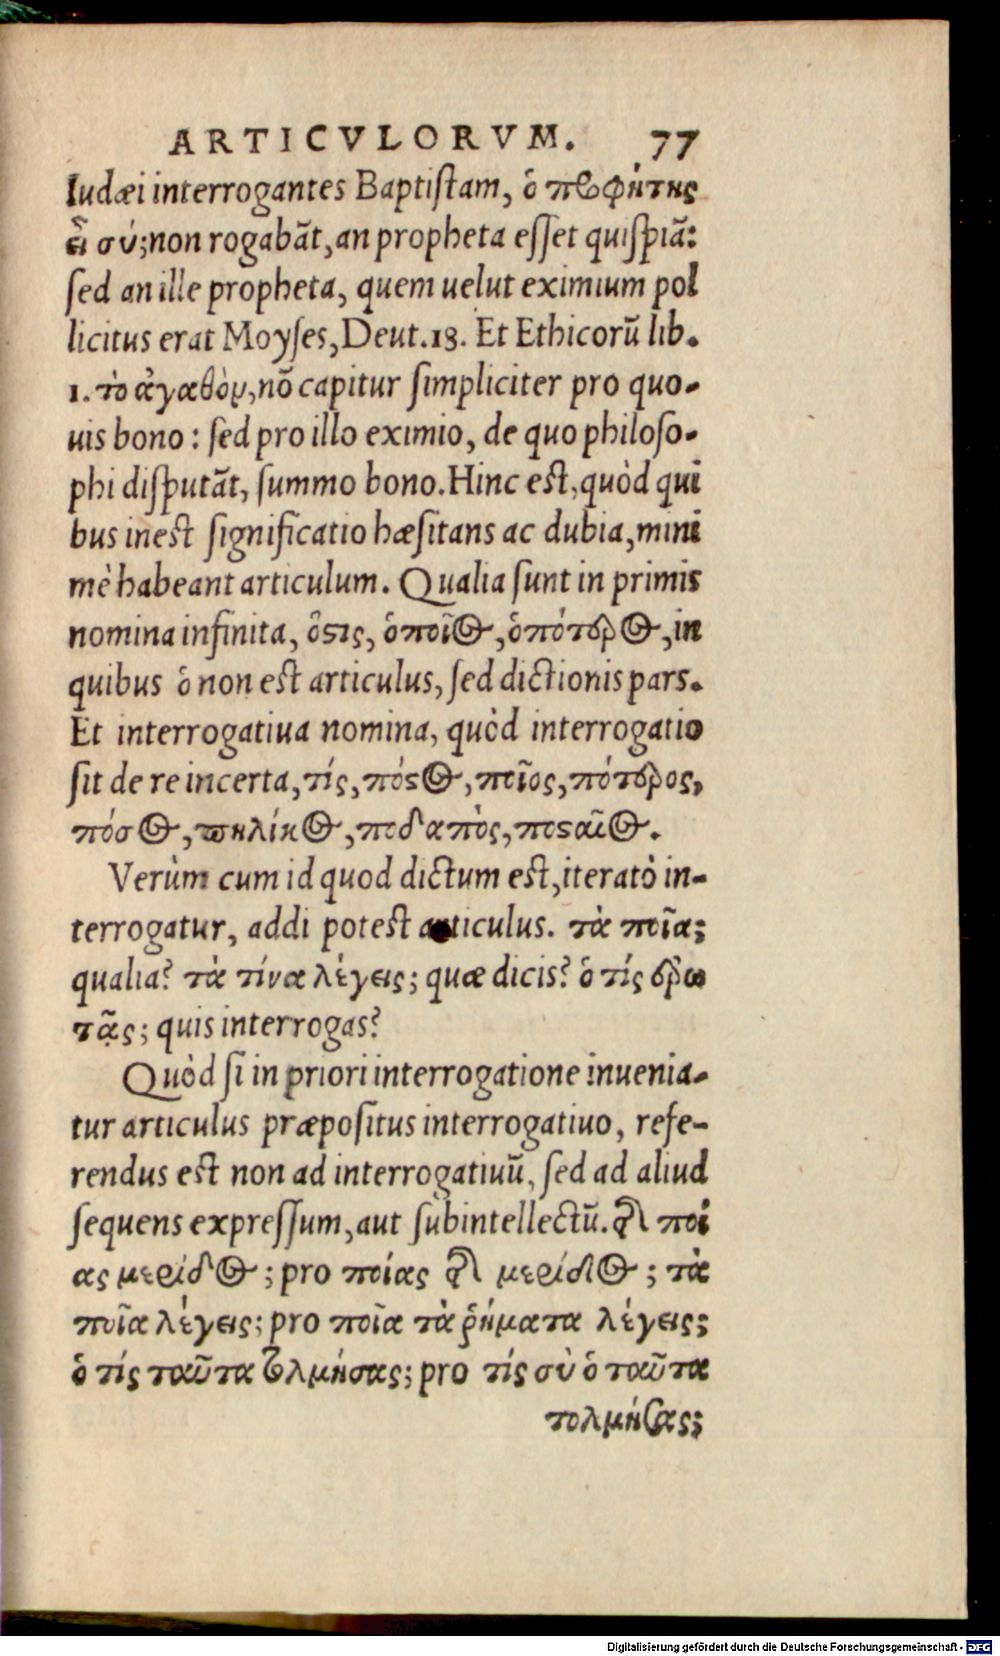 ARTICVLORVM. 77
Iudæi interrogantes Baptiſtam, ὁ προφήτης
εἶ σύ; non rogabãt, an propheta eſſet quiſpiã:
ſed an ille propheta, quem uelut eximium pol
licitus erat Moyſes, Deut.18. Et Ethicorũ lib.
1. τὸ ἀγαθὸν, nõ capitur ſimpliciter pro quo-
uis bono: ſed pro illo eximio, de quo philoſo-
phi diſputãt, ſummo bono. Hinc eſt, quòd qui
bus ineſt ſignificatio hæſitans ac dubia, mini
mè habeant articulum. Qualia ſunt in primis
nomina infinita, ὅϛις, ὁποῖος, ὁπότερος, in
quibus ὁ non eſt articulus, ſed dictionis pars.
Et interrogatiua nomina, quòd interrogatio
ſit de re incerta, τίς, πόϛος, ποῖος, πότερος,
πόσος, πηλίκος, ποδαπὸς, ποϛαῖος.
Verùm cum id quod dictum eſt, iteratò in-
terrogatur, addi poteſt articulus. τὰ ποῖα;
qualia? τὰ τίνα λέγεις; quæ dicis? ὁ τίς ἐρω
τᾷς; quis interrogas?
Quòd ſi in priori interrogatione inuenia-
tur articulus præpoſitus interrogatiuo, refe-
rendus eſt non ad interrogatiuũ, ſed ad aliud
ſequens expreſſum, aut ſubintellectũ. τῆς ποί
ας μερίδος; pro ποίας τῆς μερίδος; τὰ
ποῖα λέγεις; pro ποῖα τὰ ῥήματα λέγεις;
ὁ τίς ταῦτα τολμήσας; pro τίς σὺ ὁ ταῦτα
τολμήσας;
Digitalisierung gefördert durch die Deutsche Forschungsgemeinschaft - DFG